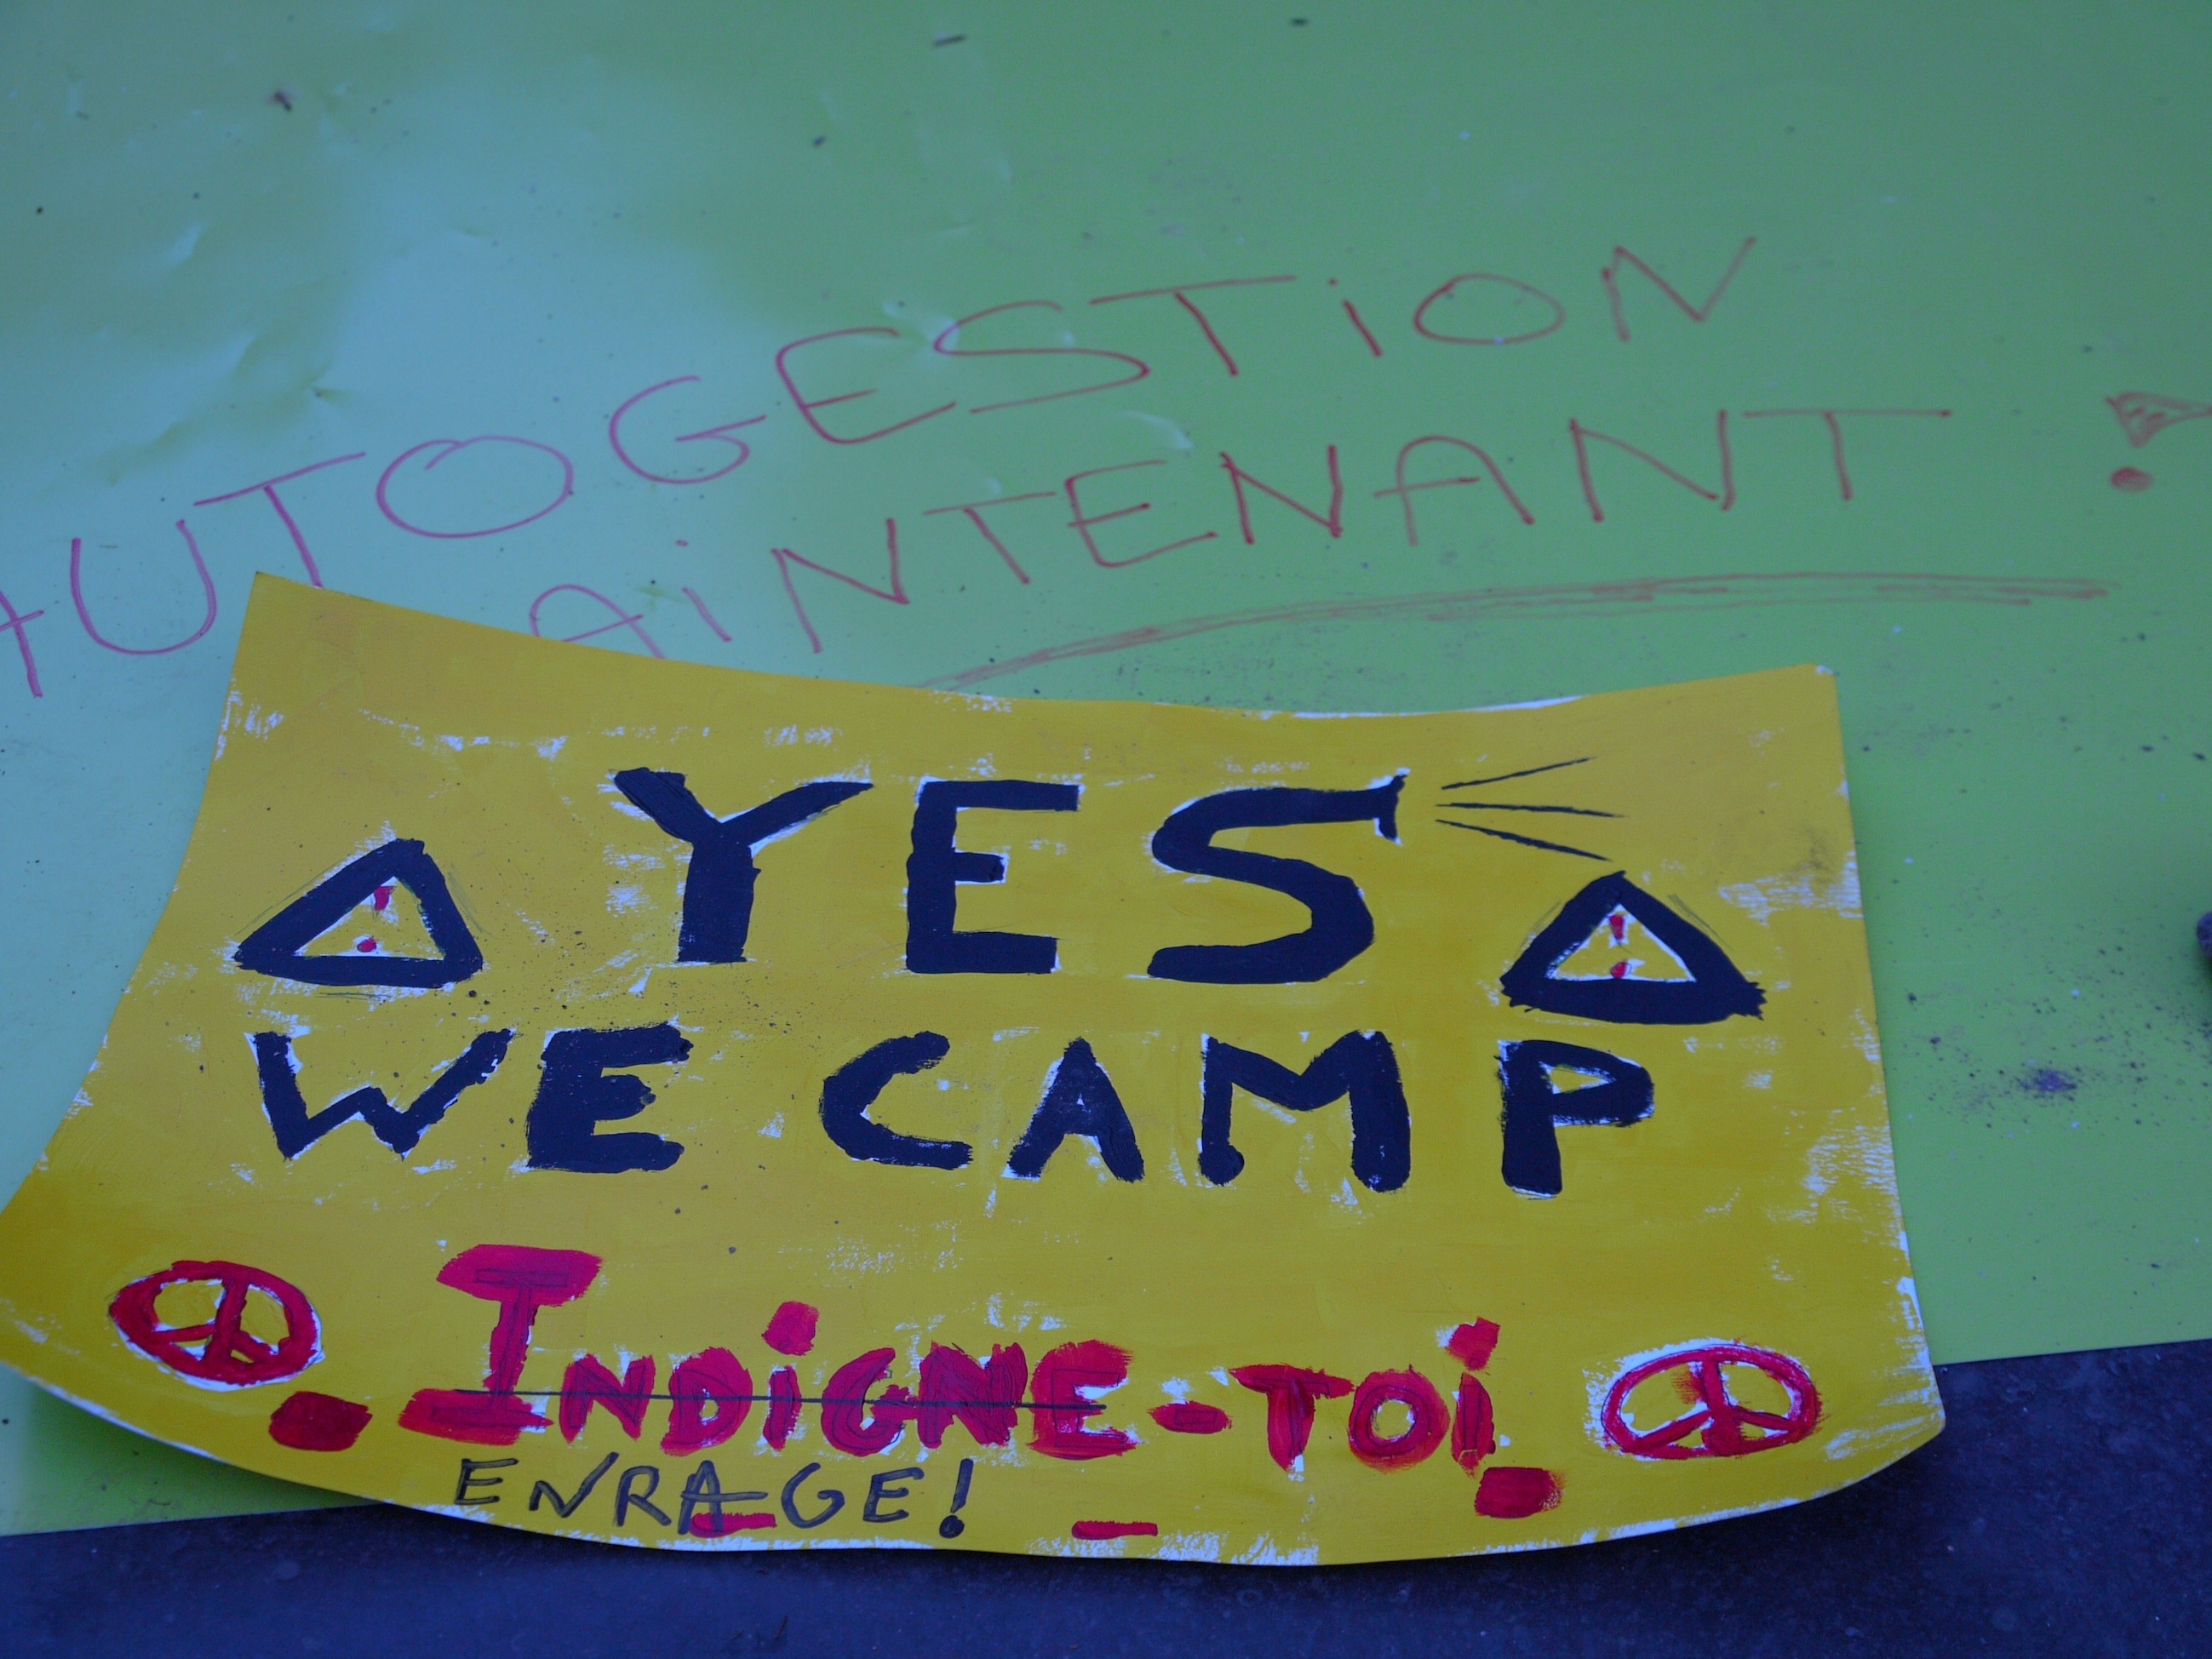 AUTOGESTiON
AiNTENANT !
YES
WE CAMP
INDiGNE-TOi
ENRAGE!